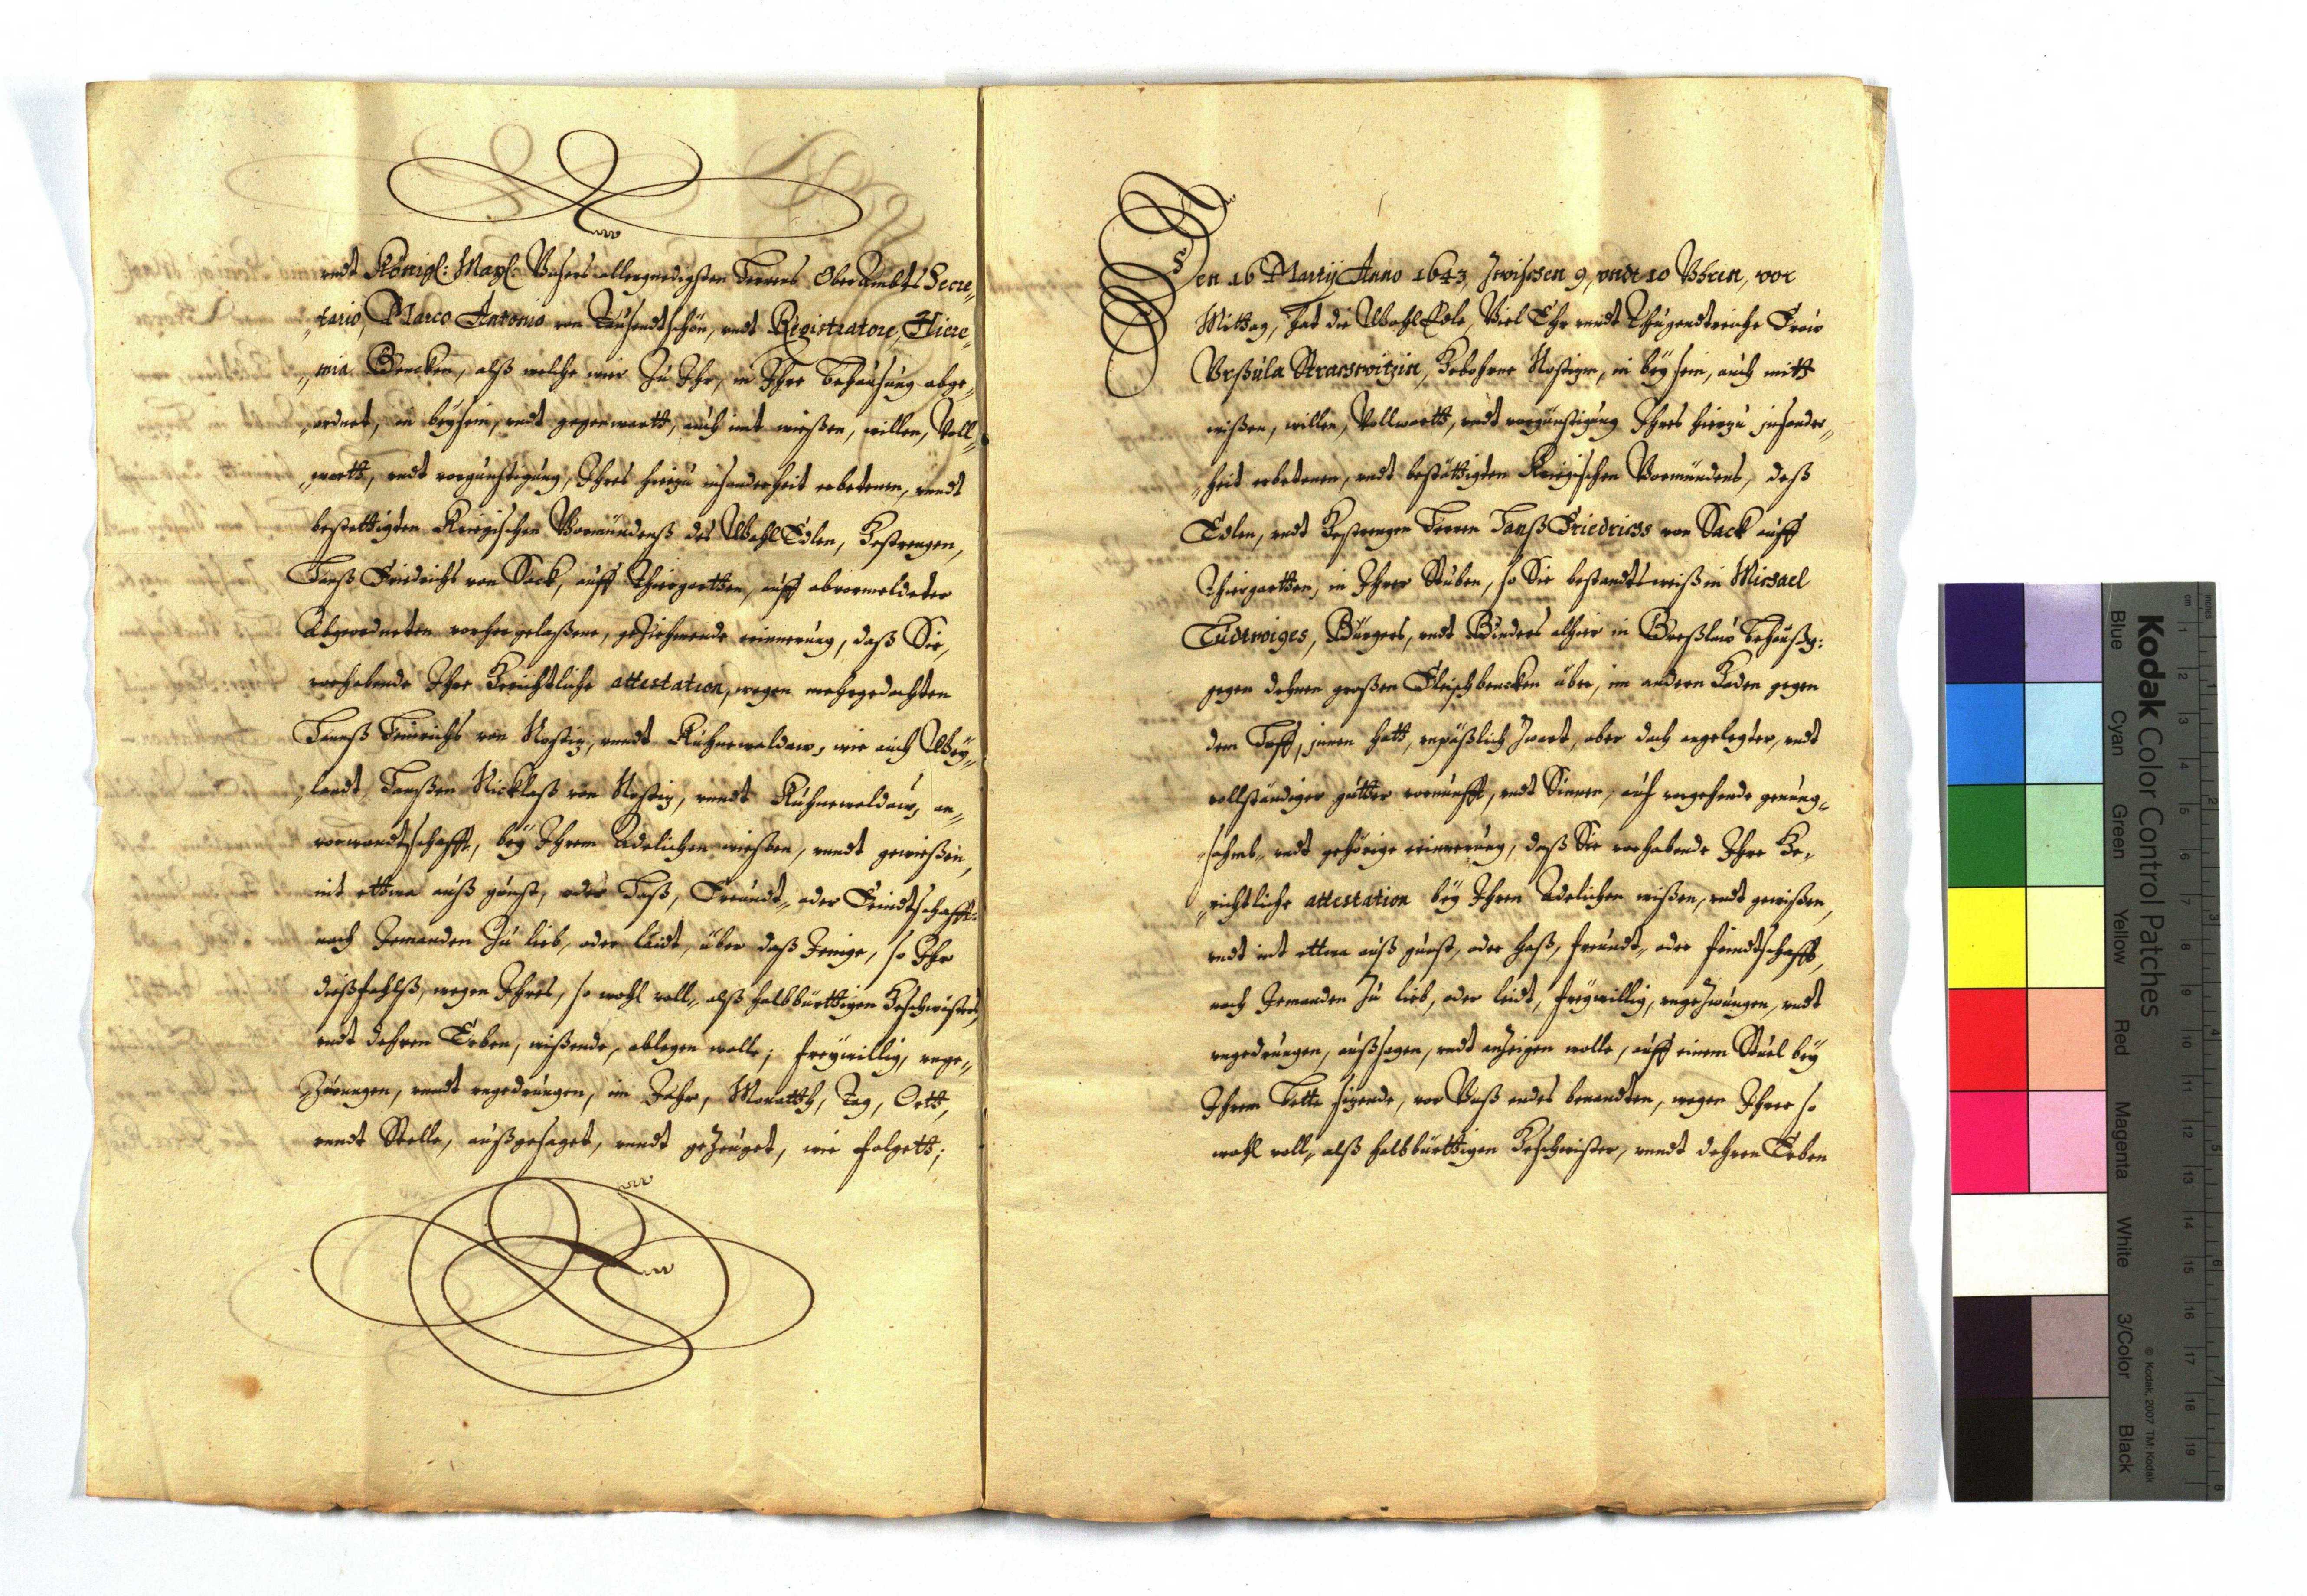 vndt Königl: Mayl: Vnsers allergnedigsten Herrens OberAmbts Secre„
„tario, Marco Antonio von Tausendtschön, vndt Registratore, Hiere„
„mia Bencken, alß welche wir Zu Ihr, in Ihre behausung abge„
„ordnet, in beysein, vndt gegenwartt, auch mit wießen, willen, Voll„
„wortt, vndt vorgünstigung, Ihres hierzu insonderheit erbetenen, vundt
bestettigten Kriegischen Vormündenß des WohlEdlen, Gestrengen,
Hanß Friedrichs von Sack, auff Thiergartten, auff obvormeldeter
Abgeordneten vorhergelaßene, geziehmende erinnerung, daß Sie,
vorhabende Ihre Gerichtliche attestation, wegen mehrgedachten
Hannß Heinrichs von Nostiz, vundt Kuhnewaldaw, wie auch Wey„
„landt Hanßen Nicklaß von Nostiz, vundt Kuhnewaldaw, an„
vorwandtschafft, bey Ihrem Adelichen wießen, vundt gewießen,
nit ettwa auß gunst, oder Haß, Freundt„ oder Feindtschafft
noch Jemanden Zu lieb, oder leidt, über daß Jenige, so Ihr
dießfahlß, wegen Ihres, so wohl voll„ alß halbbürttigen Geschwisters,
vndt dehren Erben, wißende, ablegen wolle; freywillig, vnge„
Zwungen, vundt vngedrungen, im Jahr, Monatth, Tag, Ortt,
vundt Stelle, außgesaget, vundt gezeuget, wie folgett;
Den 16 Martij Anno 1643, Zwischen 9, vndt 10 Vhren, vor
Mittag, Hat die WohlEdle, Viel Ehr vundt Thugendtreiche Fraw
Vrßula Strachwitzin, Gebohrne Nostizin, in beysein, auch mitt
wißen, willen, Vollwortt, vndt vorgünstigung Ihres hierzu insonder„
„heit erbetenen, vndt bestättigten Kriegischen Vormündens, deß
Edlen, vndt Gestrengen Herren Hanß Friedrichs von Sack auff
Thiergartten, in Ihrer Stuben, so Sie bestandtsweiß in Michael
Ludwiges, Bürgers, vndt Binders alhier in Breßlaw behaußg:
gegen dehnen großen Fleischbencken über, im andern Gaden gegen
dem Hoff, innen hatt, vnpäßlich Zwart, aber doch angelegter, vndt
vollständiger gutter vernunfft, vndt Sinnen, auf vorgehende genung„
„sahmb„ vndt gehörige erinnerung, daß Sie vorhabende Ihre Ge„
„richtliche attestation bey Ihrem Adelichen wißen, vndt gewißen,
vndt nit ettwa auß gunst, oder haß, freundt„ oder feindtschafft,
noch Jemanden Zu lieb, oder leidt, freywillig, vngezwungen, vndt
vngedrungen, außsagen, vndt anzeigen wolle, auff einem Stuel bey
Ihrem Bette sizende, vor Vnß endes benandten, wegen Ihrer so
wohl voll„ alß halbbürttigen Geschwister, vundt dehren Erben
Kodak Color Control Patches
Blue Cyan Green Yellow Red Magenta White 3/Color Black
© Kodak, 2007 TM: Kodak